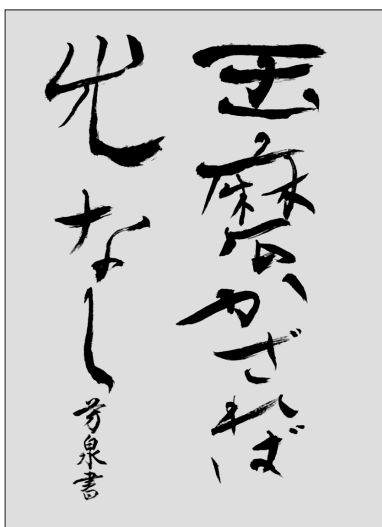 玉磨かざれば
光なし
芳泉書